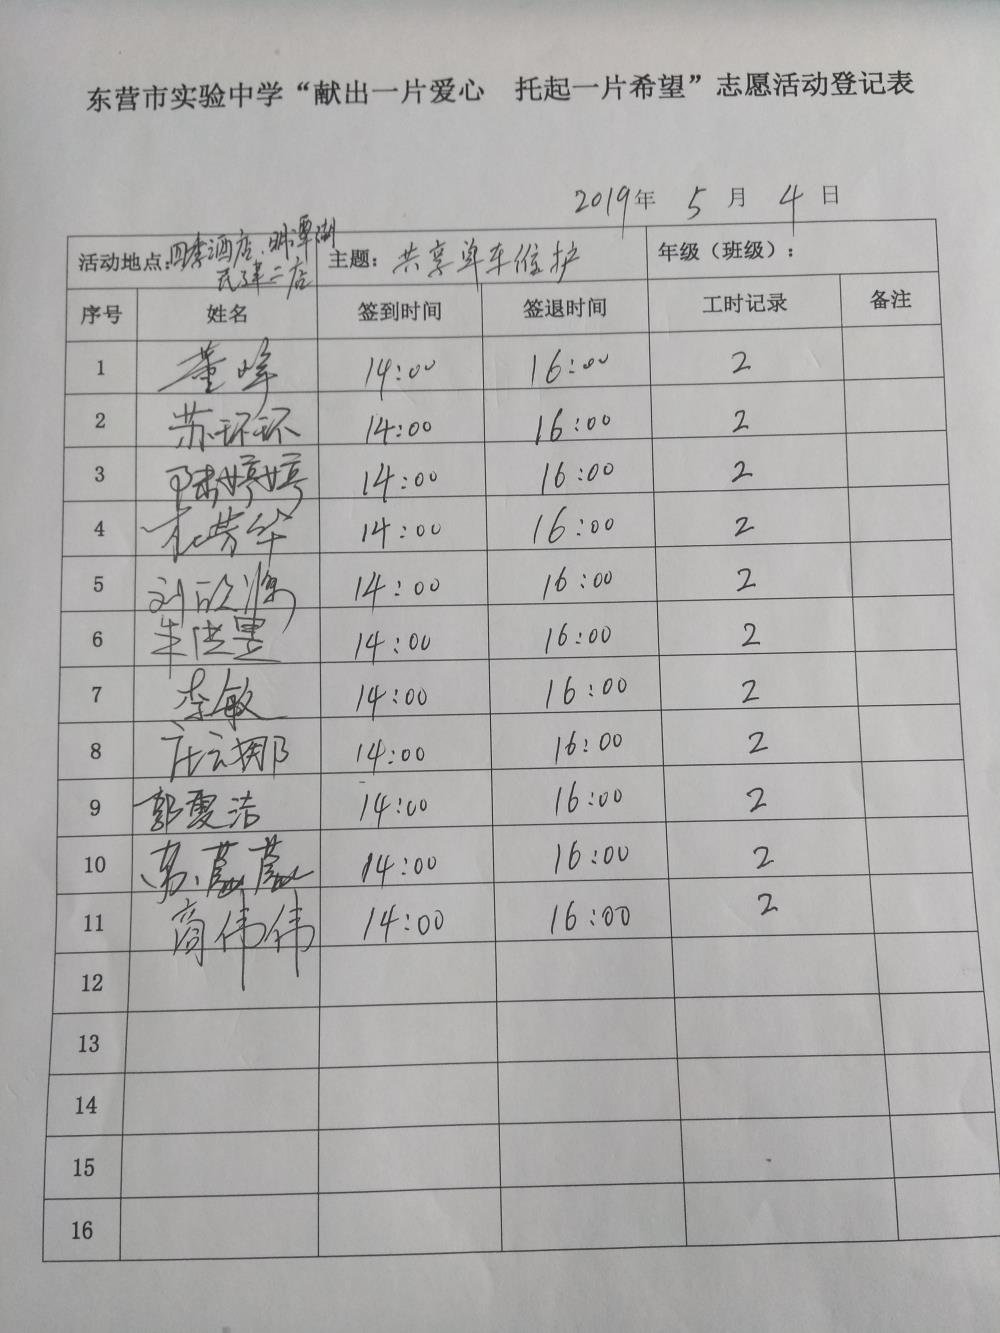 东营市实验中学“献出一片爱心 托起一片希望”志愿活动登记表
2019年 5 月 4 日
活动地点：四季酒店、明潭湖 主题：共享单车维护 年级（班级）：
民建二店
序号 姓名 签到时间 签退时间 工时记录 备注
1 董峰 14:00 16:00 2
2 苏环环 14:00 16:00 2
3 陆婷婷 14:00 16:00 2
4 杜芳华 14:00 16:00 2
5 刘欣 14:00 16:00 2
6 朱洪昱 14:00 16:00 2
7 李敏 14:00 16:00 2
8 庄云娜 14:00 16:00 2
9 郭夏洁 14:00 16:00 2
10 14:00 16:00 2
11 商伟伟 14:00 16:00 2
12
13
14
15
16